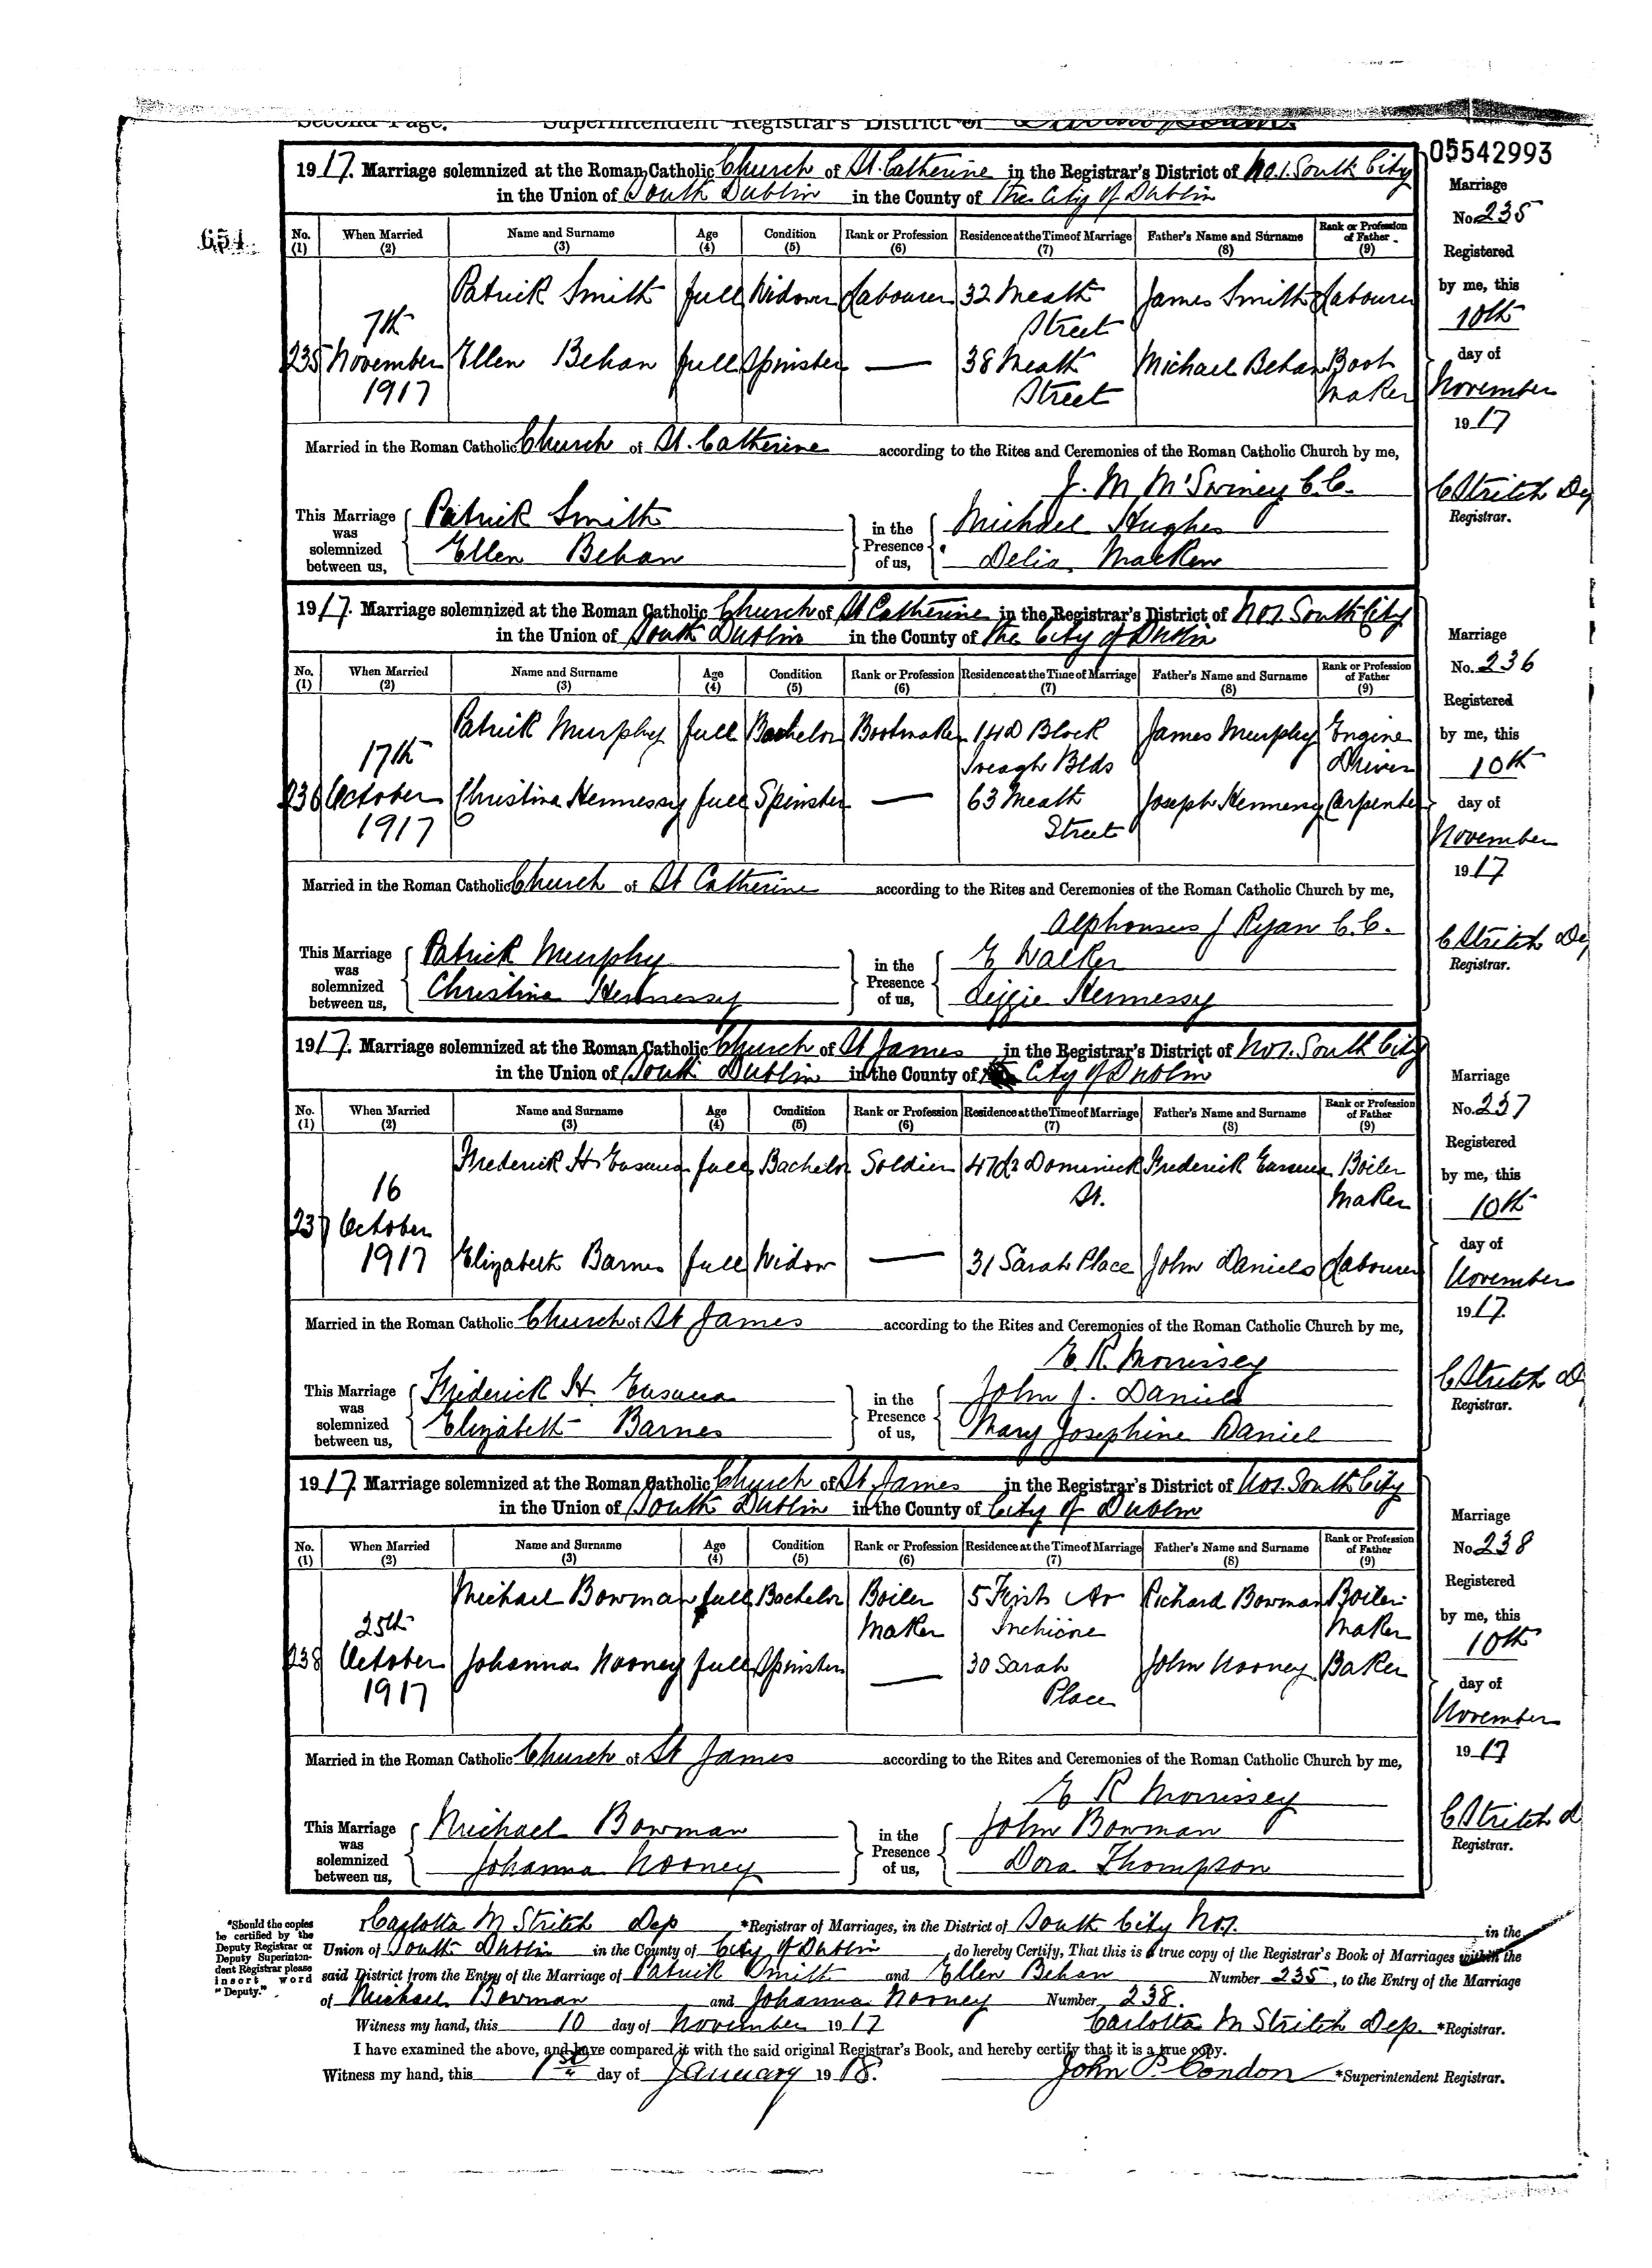 Second Page. Superintendent Registrar's District of Dublin South
05542993
654
1917. Marriage solemnized at the Roman Catholic Church of St. Catherine in the Registrar's District of No. 1. South City
in the Union of South Dublin in the County of The City of Dublin
No. (1) When Married (2) Name and Surname (3) Age (4) Condition (5) Rank or Profession (6) Residence at the Time of Marriage (7) Father's Name and Surname (8) Rank or Profession of Father (9)
235 7th November 1917
Patrick Smith full Widower Labourer 32 Meath Street James Smith Labourer
Ellen Behan full Spinster — 38 Meath Street Michael Behan Boot Maker
Married in the Roman Catholic Church of St. Catherine according to the Rites and Ceremonies of the Roman Catholic Church by me,
J. M. M'Swiney C.C.
This Marriage was solemnized between us, Patrick Smith
Ellen Behan
in the Presence of us, Michael Hughes
Delia Macken
Marriage
No. 235
Registered
by me, this
10th
day of
November
1917
C Stritch Dep
Registrar.
1917. Marriage solemnized at the Roman Catholic Church of St Catherine in the Registrar's District of No 1. South City
in the Union of South Dublin in the County of The City of Dublin
No. (1) When Married (2) Name and Surname (3) Age (4) Condition (5) Rank or Profession (6) Residence at the Time of Marriage (7) Father's Name and Surname (8) Rank or Profession of Father (9)
236 17th October 1917
Patrick Murphy full Bachelor Bootmaker 14D Block Iveagh Blds James Murphy Engine Driver
Christina Hennessy full Spinster — 63 Meath Street Joseph Hennessy Carpenter
Married in the Roman Catholic Church of St Catherine according to the Rites and Ceremonies of the Roman Catholic Church by me,
Alphonsus J Ryan C.C.
This Marriage was solemnized between us, Patrick Murphy
Christina Hennessy
in the Presence of us, E Walker
Lizzie Hennessy
Marriage
No. 236
Registered
by me, this
10th
day of
November
1917
C Stritch Dep
Registrar.
1917. Marriage solemnized at the Roman Catholic Church of St James in the Registrar's District of No 1. South City
in the Union of South Dublin in the County of City of Dublin
No. (1) When Married (2) Name and Surname (3) Age (4) Condition (5) Rank or Profession (6) Residence at the Time of Marriage (7) Father's Name and Surname (8) Rank or Profession of Father (9)
237 16 October 1917
Frederick H full Bachelor Soldier 47 Dominick St. Frederick Boiler Maker
Elizabeth Barnes full Widow — 31 Sarah Place John Daniels Labourer
Married in the Roman Catholic Church of St James according to the Rites and Ceremonies of the Roman Catholic Church by me,
E. R. Morrissey
This Marriage was solemnized between us, Frederick H.
Elizabeth Barnes
in the Presence of us, John J. Daniels
Mary Josephine Daniel
Marriage
No. 237
Registered
by me, this
10th
day of
November
1917.
C Stritch D
Registrar.
1917 Marriage solemnized at the Roman Catholic Church of St James in the Registrar's District of No 1. South City
in the Union of South Dublin in the County of City of Dublin
No. (1) When Married (2) Name and Surname (3) Age (4) Condition (5) Rank or Profession (6) Residence at the Time of Marriage (7) Father's Name and Surname (8) Rank or Profession of Father (9)
238 25th October 1917
Michael Bowman full Bachelor Boiler Maker 5 Av Inchicore Richard Bowman Boiler Maker
Johanna Nooney full Spinster — 30 Sarah Place John Nooney Baker
Married in the Roman Catholic Church of St James according to the Rites and Ceremonies of the Roman Catholic Church by me,
E R Morrissey
This Marriage was solemnized between us, Michael Bowman
Johanna Nooney
in the Presence of us, John Bowman
Dora Thompson
Marriage
No. 238
Registered
by me, this
10th
day of
November
1917
C Stritch d
Registrar.
*Should the copies be certified by the Deputy Registrar or Deputy Superintendent Registrar please insert word "Deputy."
I Carlotta M Stritch Dep *Registrar of Marriages, in the District of South City No 1. in the
Union of South Dublin in the County of City of Dublin, do hereby Certify, That this is a true copy of the Registrar's Book of Marriages within the
said District from the Entry of the Marriage of Patrick Smith and Ellen Behan Number 235, to the Entry of the Marriage
of Michael Bowman and Johanna Nooney Number 238.
Witness my hand, this 10 day of November 1917 Carlotta M Stritch Dep. *Registrar.
I have examined the above, and have compared it with the said original Registrar's Book, and hereby certify that it is a true copy.
Witness my hand, this 1st day of January 1918. John P. Condon *Superintendent Registrar.